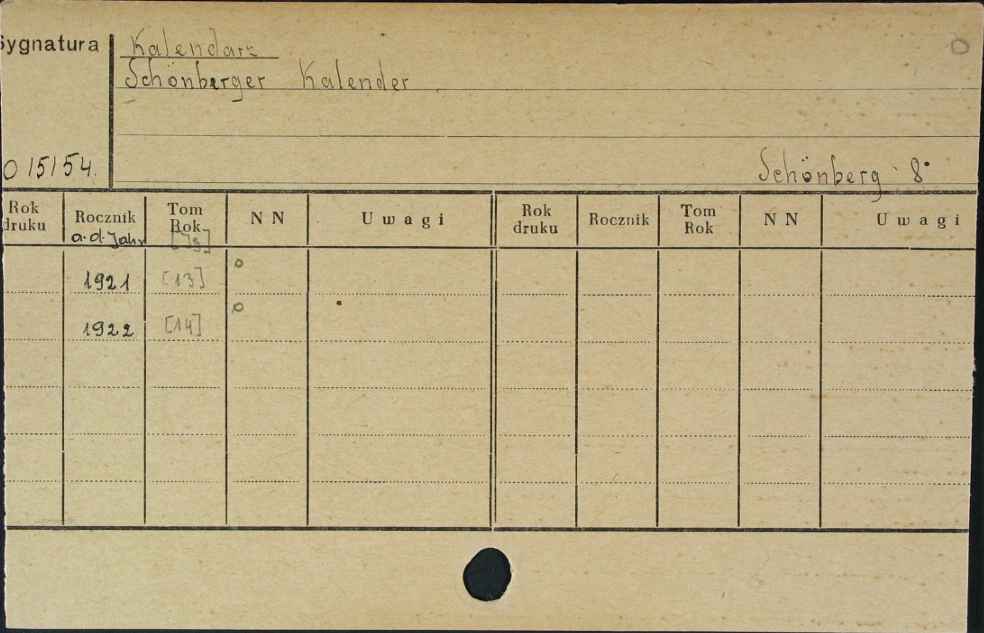 Sygnatura
Kalendarz
Schönberger Kalender
O 15154.
Schönberg 8°
Rok druku Rocznik Tom Rok NN Uwagi Rok druku Rocznik Tom Rok NN Uwagi
a.d. Jahr [Jg]
1921 [13] o
1922 [14] o